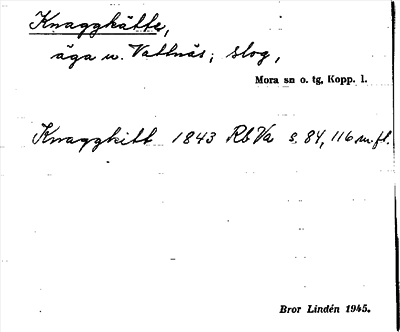 Knaggkätte,
äga u. Vattnäs; slog,
Mora sn o. tg, Kopp. l.
Knaggkitt 1843 Rb Va s. 84, 116 m.fl.
Bror Lindén 1945.